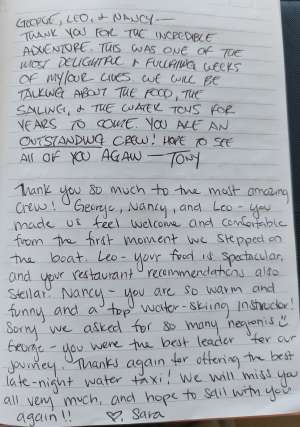 GEORGE, LEO, & NANCY —
THANK YOU FOR THE INCREDIBLE
ADVENTURE. THIS WAS ONE OF THE
MOST DELIGHTFUL & FULFILLING WEEKS
OF MY/OUR LIVES. WE WILL BE
TALKING ABOUT THE FOOD, THE
SAILING, & THE WATER TOYS FOR
YEARS TO COME. YOU ARE AN
OUTSTANDING CREW! HOPE TO SEE
All OF YOU AGAIN — TONY
Thank you so much to the most amazing
crew! George, Nancy, and Leo - you
made us feel welcome and comfortable
from the first moment we stepped on
the boat. Leo - your food is spectacular,
and your restaurant recommendations also
stellar. Nancy - you are so warm and
funny and a top water-skiing instructor!
Sorry we asked for so many negronis
George - you were the best leader for our
journey. Thanks again for offering the best
late-night water taxi! We will miss you
all very much, and hope to sail with you
again!! ♡, Sara